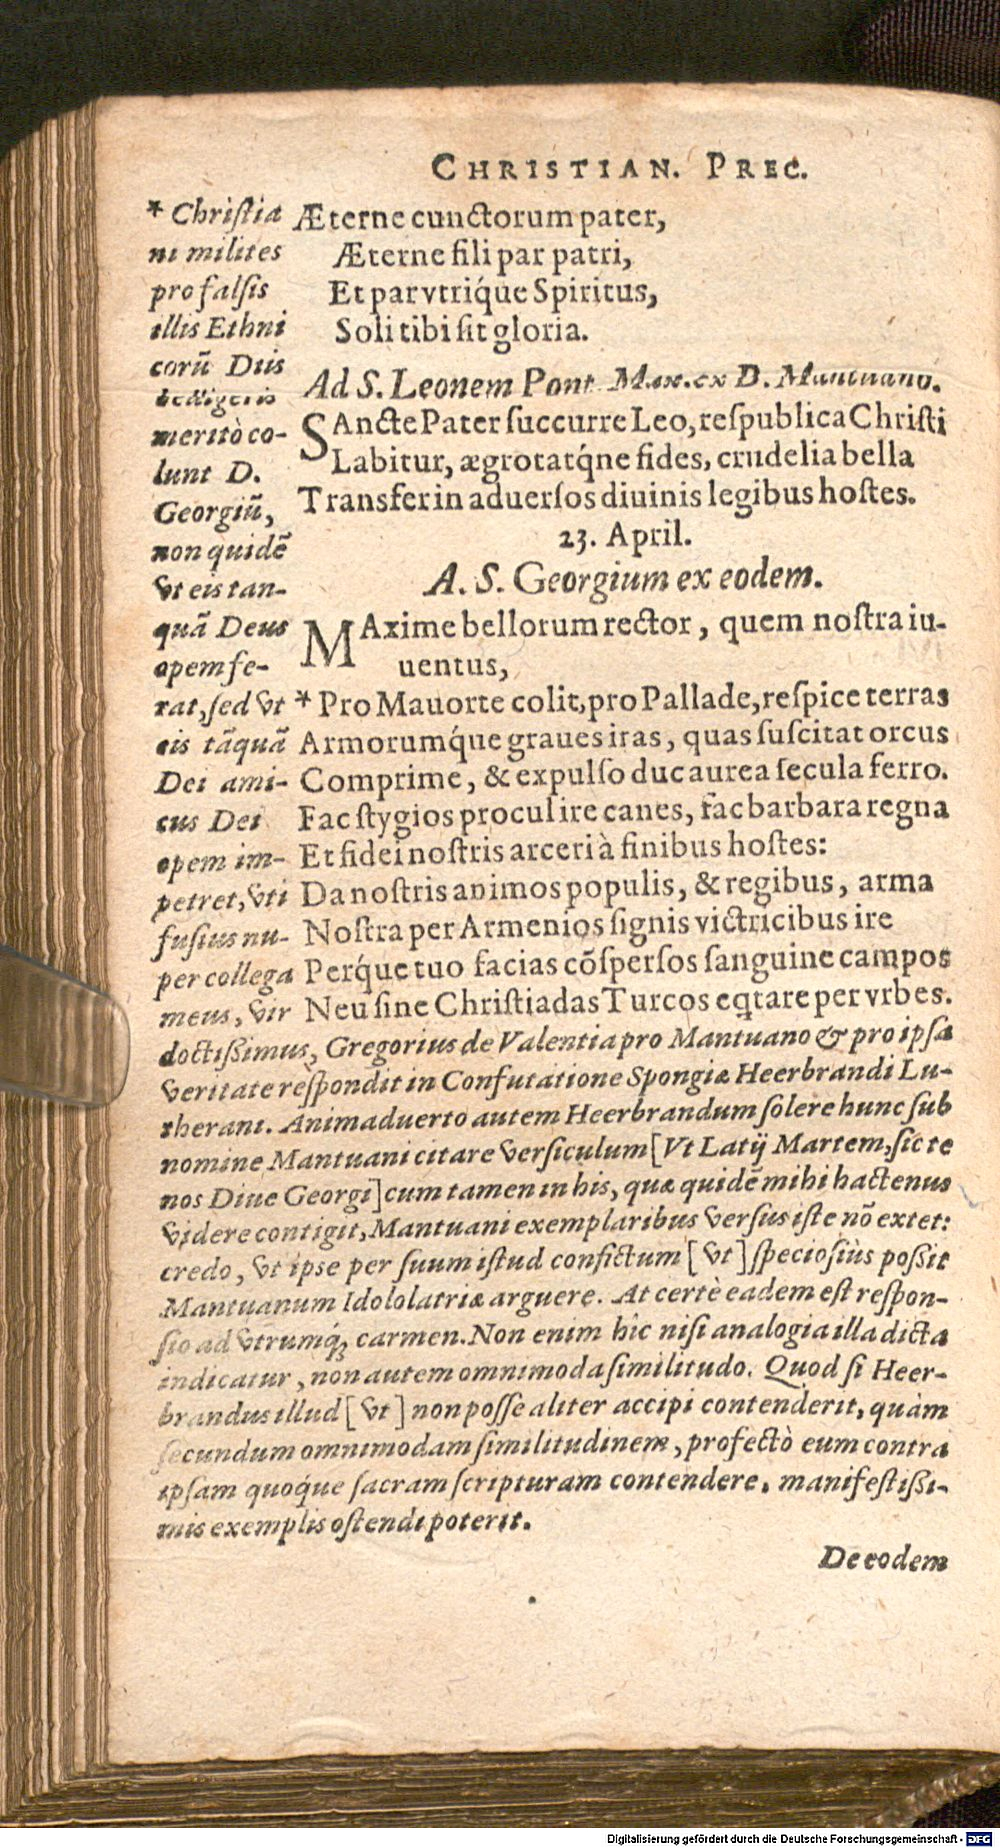 CHRISTIAN. PREC.
Æterne cunctorum pater,
Æterne fili par patri,
Et par vtriq́ue Spiritus,
Soli tibi sit gloria.
Ad S. Leonem Pont. Max. ex D. Mantuano.
SAncte Pater succurre Leo, respublica Christi
Labitur, ægrotatq́ne fides, crudelia bella
Transfer in aduersos diuinis legibus hostes.
23. April.
A. S. Georgium ex eodem.
MAxime bellorum rector, quem nostra iu-
uentus,
* Pro Mauorte colit, pro Pallade, respice terras
Armorumq́ue graues iras, quas suscitat orcus
Comprime, & expulso duc aurea secula ferro.
Fac stygios procul ire canes, fac barbara regna
Et fidei nostris arceri à finibus hostes:
Da nostris animos populis, & regibus, arma
Nostra per Armenios signis victricibus ire
Perq́ue tuo facias cōspersos sanguine campos
Neu sine Christiadas Turcos eqtare per vrbes.
* Christia
ni milites
pro falsis
illis Ethni
corũ Diis
belligeris
meritò co-
lunt D.
Georgiũ,
non quidẽ
vt eis tan-
quã Deus
opem fe-
rat, sed vt
eis tãquã
Dei ami-
cus Dei
opem im-
petret, vti
fusius nu-
per collega
meus, vir
doctißimus, Gregorius de Valentia pro Mantuano & pro ipsa
veritate respondit in Confutatione Spongiæ Heerbrandi Lu-
therani. Animaduerto autem Heerbrandum solere hunc sub
nomine Mantuani citare versiculum [Vt Latij Martem, sic te
nos Diue Georgi] cum tamen in his, quæ quidẽ mihi hactenus
videre contigit, Mantuani exemplaribus versus iste nõ extet:
credo, vt ipse per suum istud confictum [vt] speciosiùs poßit
Mantuanum Idololatriæ arguere. At certè eadem est respon-
sio ad vtrumq́; carmen. Non enim hîc nisi analogia illa dicta
indicatur, non autem omnimoda similitudo. Quod si Heer-
brandus illud [vt] non posse aliter accipi contenderit, quàm
secundum omnimodam similitudinem, profectò eum contra
ipsam quoq́ue sacram scripturam contendere, manifestißi-
mis exemplis ostendi poterit.
De eodem
Digitalisierung gefördert durch die Deutsche Forschungsgemeinschaft - DFG